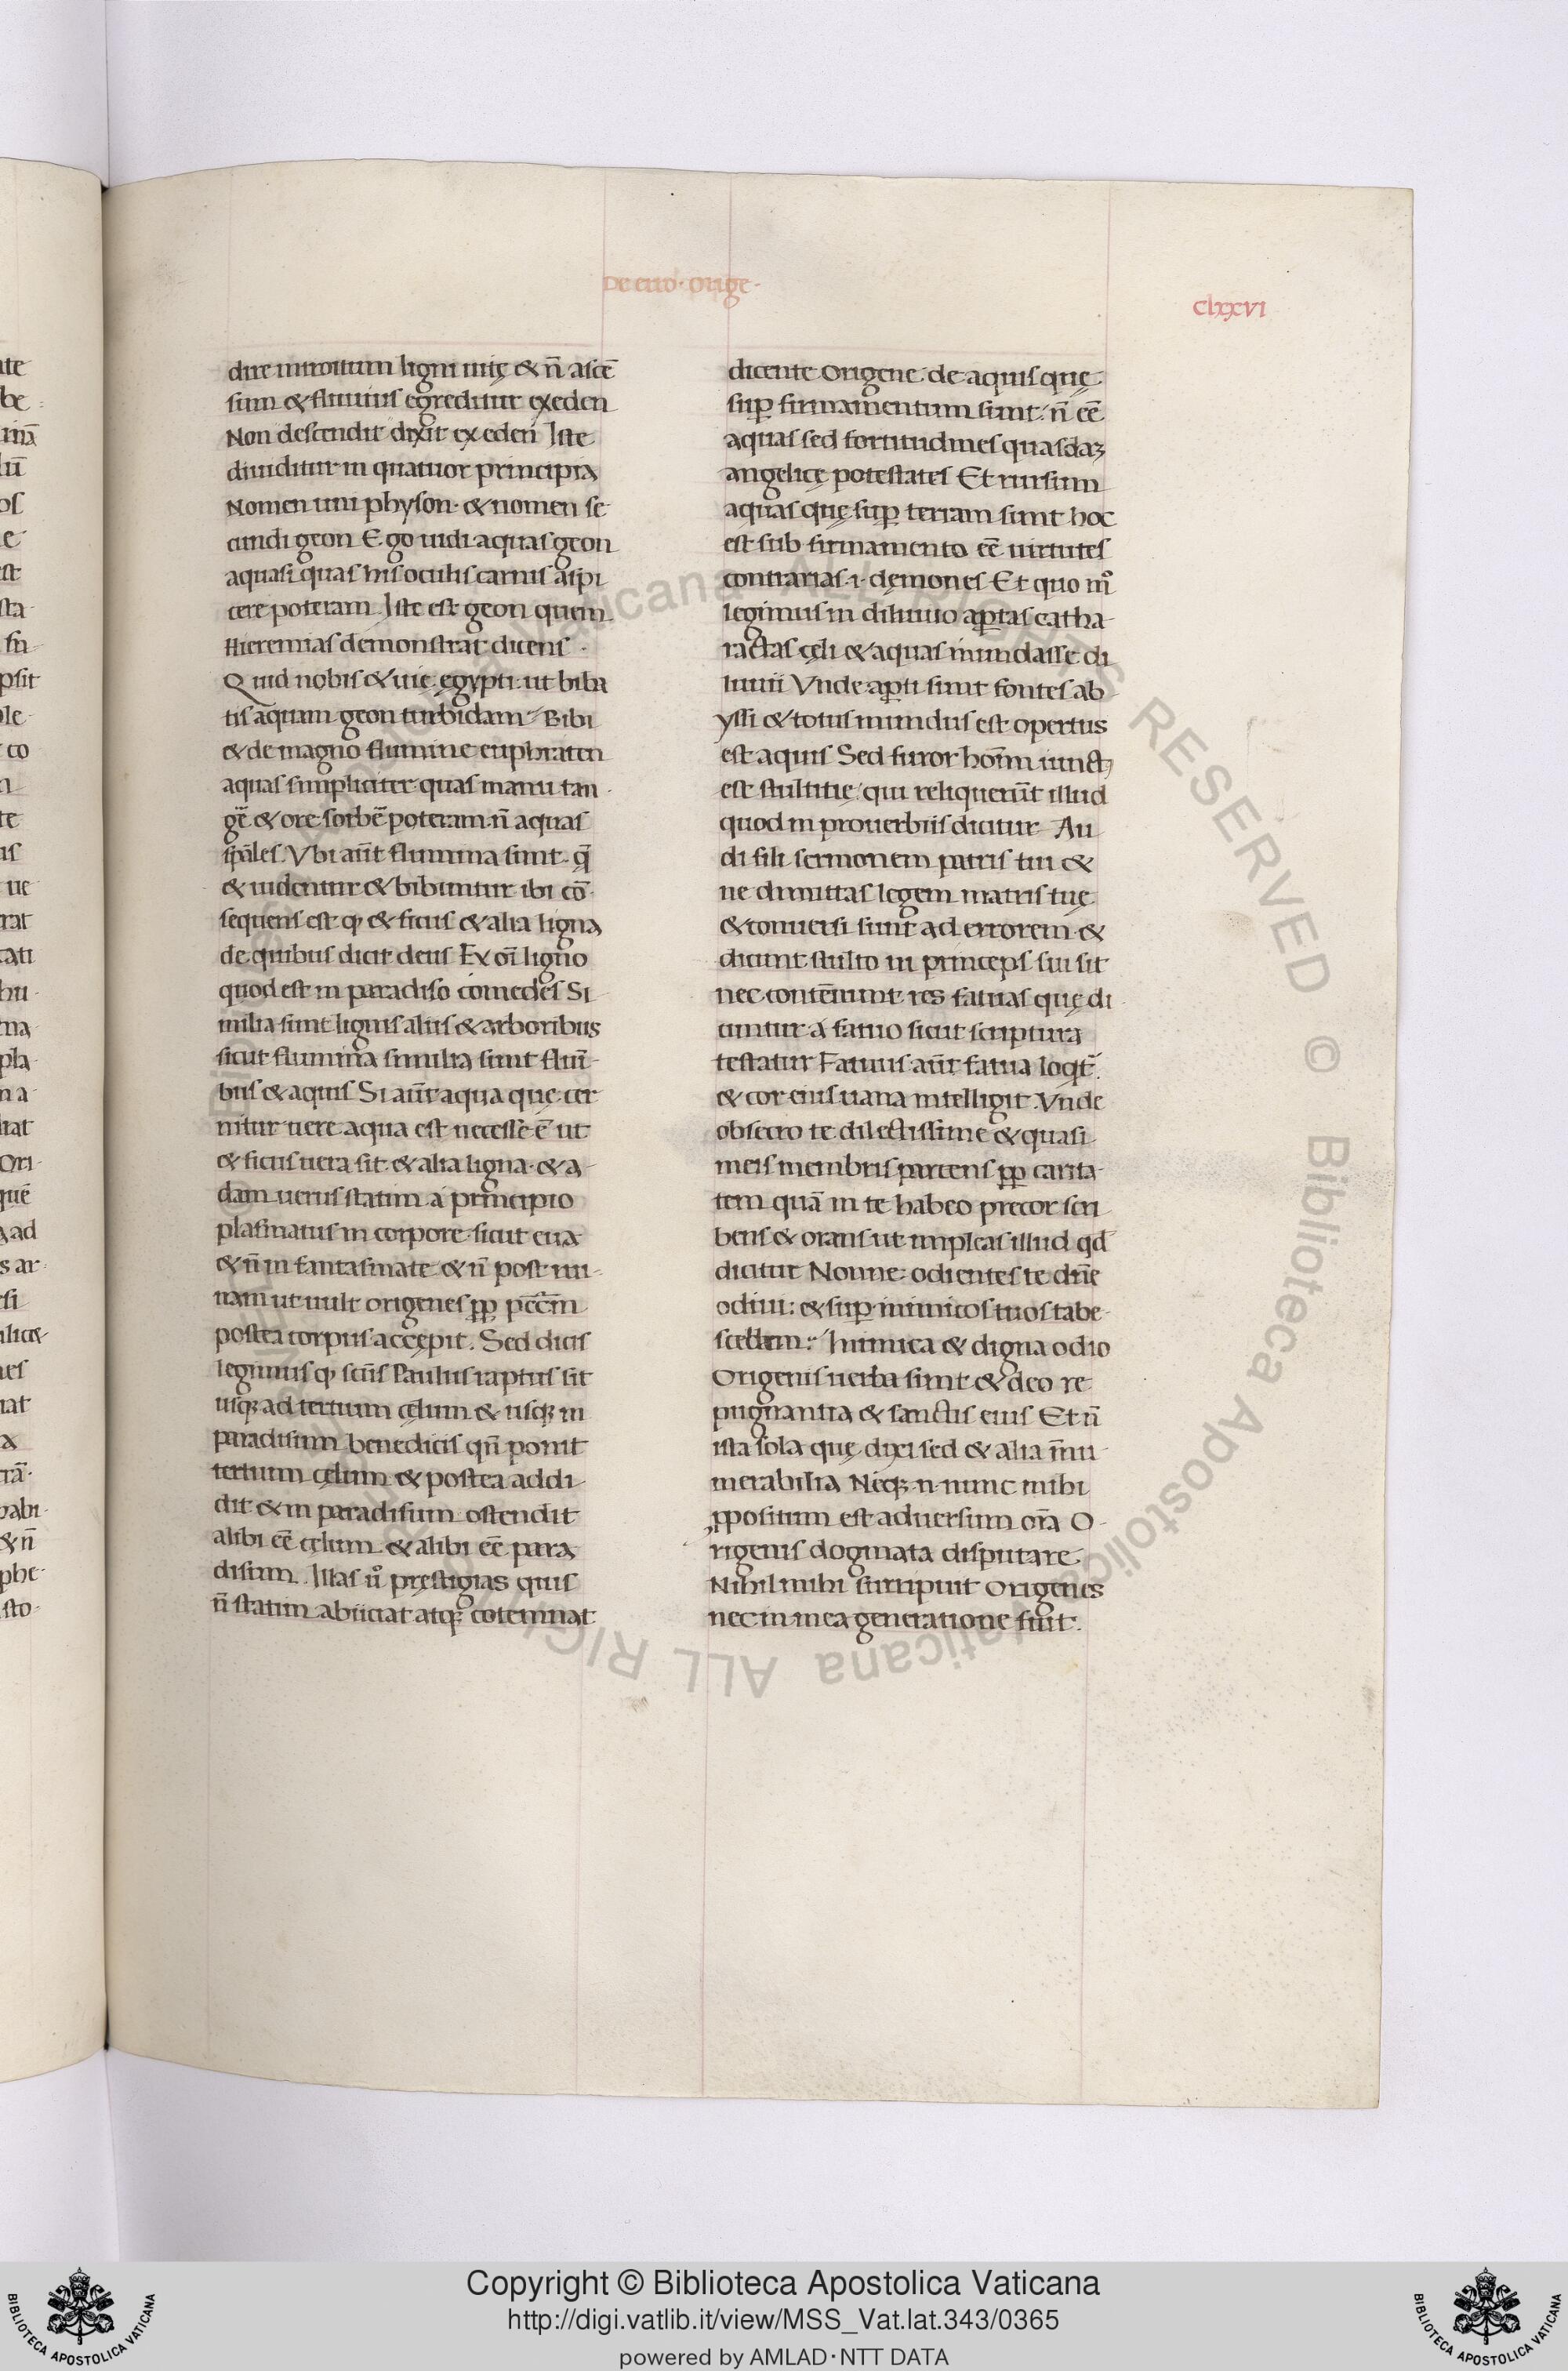 De erro· Orige·
clxxvi
dire introitum ligni uitę & n̄ ascē
sum & fluuius egreditur ex eden
Non descendit dixit ex eden Iste
diuiditur in quatuor principia
Nomen uni physon· & nomen se
cundi geon Ego uidi aquas geon
aquas quas his oculis carnis aspi
cere poteram Iste est geon quem
Hieremias demonstrat dicens ·
Quid nobis & uię egypti ut biba
tis aquam geon turbidam Bibi
& de magno flumine euphraten
aquas simpliciter quas manu tan
gē & ore sorbē poteram n̄ aquas
sp̄ales. Vbi aūt flumina sunt q̄
& uidentur & bibuntur ibi cō
sequens est ꝙ & ficus & alia ligna
de quibus dicit deus Ex oī ligno
quod est in paradiso comedes Si
milia sunt lignis aliis & arboribus
sicut flumina similia sunt flui̅
bus & aquis Si aūt aqua quę cer
nitur uere aqua est necesse ē ut
& ficus uera sit & alia ligna & a
dam uerus statim a principio
plasmatus in corpore sicut eua
& n̄ in fantasmate & n̄ post rui
nam ut uult origenes ꝓp pcc̄m
postea corpus accępit. Sed dicis
legimus ꝙ sc̄us Paulus raptus sit
usq; ad tertium cęlum & usq; in
paradisum benedicis qn̄ ponit
tertium cęlum & postea addi
dit & in paradisum ostendit
alibi eē cęlum & alibi eē para
disum. Illas u̇o pręstigias quis
n̄ statim abiiciat atq; cotemnat
dicente origene de aquis quę
suꝑ firmamentum sunt n̄ eē
aquas sed fortitudines quasdaꝫ
angelicę potestates Et rursum
aquas quę suꝑ terram sunt hoc
est sub firmamento eē uirtutes
contrarias ·i· dęmones Et quo mo
legimus in diluuio aꝑtas catha
ractas cęli & aquas inundasse di
luuii Vnde aꝑti sunt fontes ab
yssi & totus mundus est opertus
est aquis Sed furor hoīm iunctꝰ
est stultitię qui reliquerūt illud
quod in prouerbiis dicitur Au
di fili sermonem patris tui &
ne dimittas legem matris tuę
& conuersi sunt ad errorem &
dicunt stulto ut princeps sui sit
nec contēnunt res fatuas quę di
cuntur a fatuo sicut scriptura
testatur Fatuus aūt fatua loqt̄.
& cor eius uana intelligit. Vnde
obsecro te dilectissime & quasi
meis membris parcens ꝓp carita
tem quā in te habeo precor scri
bens & orans ut impleas illud qd̄
dicitur Nonne odientes te dn̄e
odiui: & suꝑ inimicos tuos tabe
scebam: Inimica & digna odio
Origenis uerba sunt & deo re
pugnantia & sanctis eius Et n̄
ista sola quę dixi sed & alia īnu
merabilia Neq; n̄ nunc mihi
ꝓpositum est aduersum oīa O
rigenis dogmata disputare
Nihil mihi surripuit Origenes
nec in mea generatione fuit.
Copyright © Biblioteca Apostolica Vaticana
http://digi.vatlib.it/view/MSS_Vat.lat.343/0365
powered by AMLAD·NTT DATA